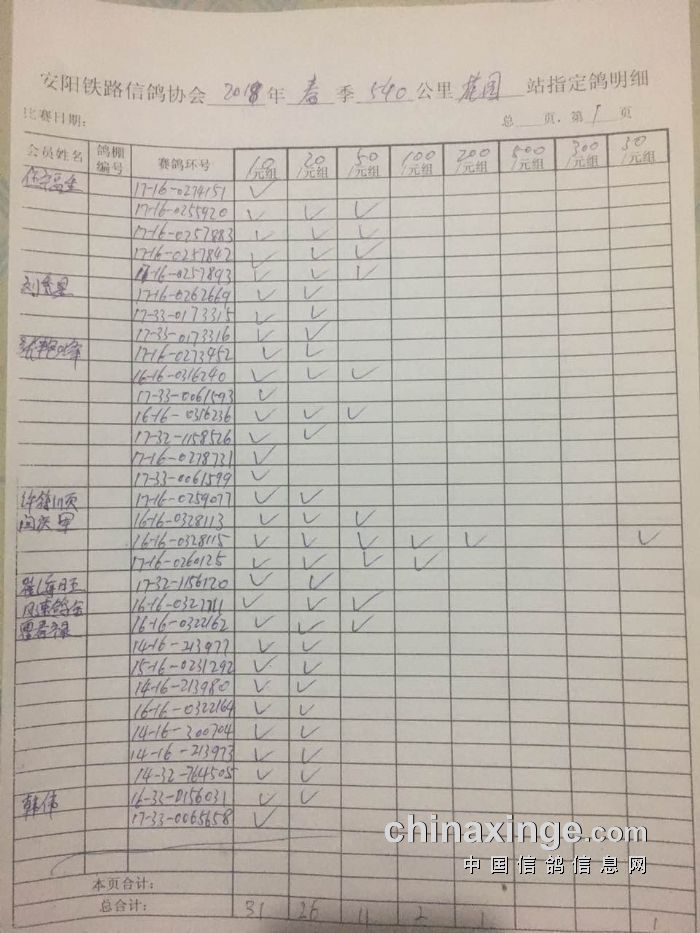 安阳铁路信鸽协会 2018 年 春 季 540 公里 花园 站指定鸽明细
比赛日期: 总 页.第 1 页
会员姓名 鸽棚编号 赛鸽环号 10元组 20元组 50元组 100元组 200元组 500元组 300元组 30元组
17-16-0274151 ✓
17-16-0255920 ✓ ✓ ✓
17-16-0257883 ✓ ✓ ✓
17-16-0257842 ✓ ✓ ✓
17-16-0257893 ✓ ✓ ✓
17-16-0262669 ✓ ✓
17-33-0173315 ✓ ✓
17-33-0173316 ✓ ✓
17-16-0273452 ✓ ✓
16-16-0316240 ✓ ✓ ✓
17-33-0061593 ✓
16-16-0316236 ✓ ✓ ✓
17-32-1158526 ✓ ✓
17-16-0278731 ✓
17-33-0061599 ✓
17-16-0259077 ✓ ✓
闫庆军 16-16-0328113 ✓ ✓ ✓
16-16-0328115 ✓ ✓ ✓ ✓ ✓ ✓
17-16-0260125 ✓ ✓ ✓ ✓
17-32-1156120 ✓ ✓
16-16-0322711 ✓ ✓ ✓
16-16-0322162 ✓ ✓ ✓
14-16-213977 ✓ ✓
15-16-0231292 ✓ ✓
14-16-213980 ✓ ✓
16-16-0322164 ✓ ✓
14-16-300704 ✓ ✓
14-16-213973 ✓ ✓
14-32-764505 ✓ ✓
韩伟 16-33-0156031 ✓ ✓
17-33-0065658 ✓
chinaxinge.com
中国信鸽信息网
本页合计:
总合计: 31 26 11 2 1 1